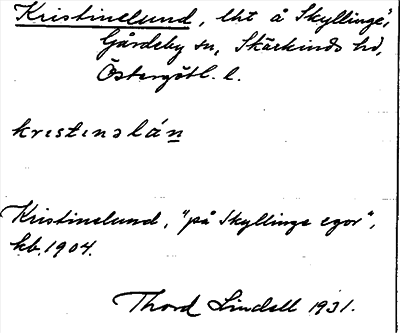 Kristinelund, lht å Skyllinge,
Gårdeby sn, Skärkinds hd,
Östergötl. l.
krɩstɩnəlán
Kristinelund, "på Skyllinge egor",
kb. 1904.
Thord Lindell 1931.